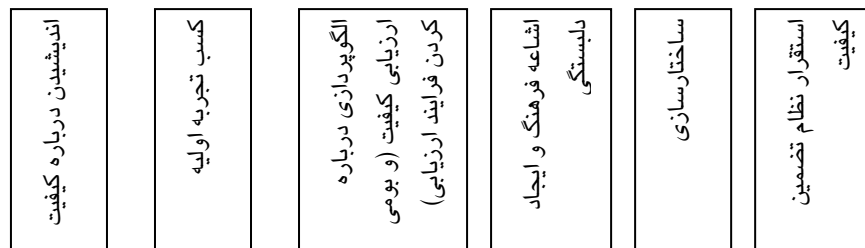 اندیشیدن درباره کیفیت
کسب تجربه اولیه
الگوپردازی درباره
ارزیابی کیفیت (و بومی
کردن فرایند ارزیابی)
اشاعه فرهنگ و ایجاد
دلبستگی
ساختارسازی
استقرار نظام تضمین
کیفیت